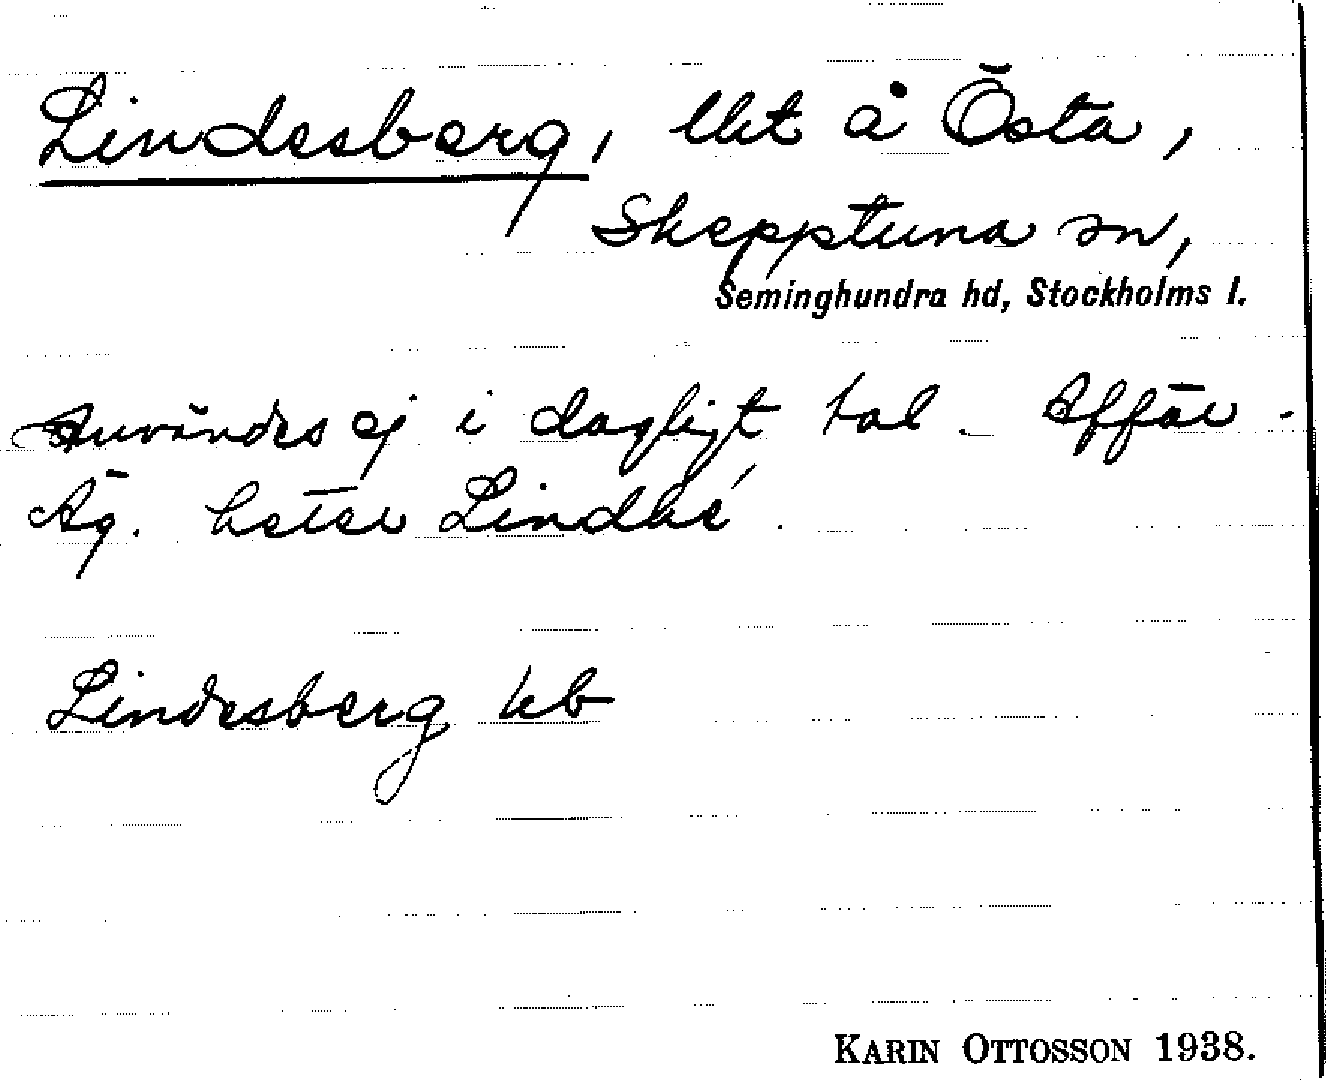 Lindesberg, lht å Östa,
Skepptuna sn,
Seminghundra hd, Stockholms l.
Användes ej i dagligt tal. Affär.
Äg. heter Lindhé.
Lindesberg
KARIN OTTOSSON 1938.